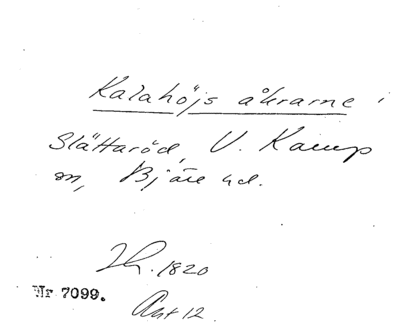 Kalahöjs åkrarne i
Slättaröd, V. Karup
sn, Bjäre hd.
Lh. 1820
Nr 7099.
Akt 12.